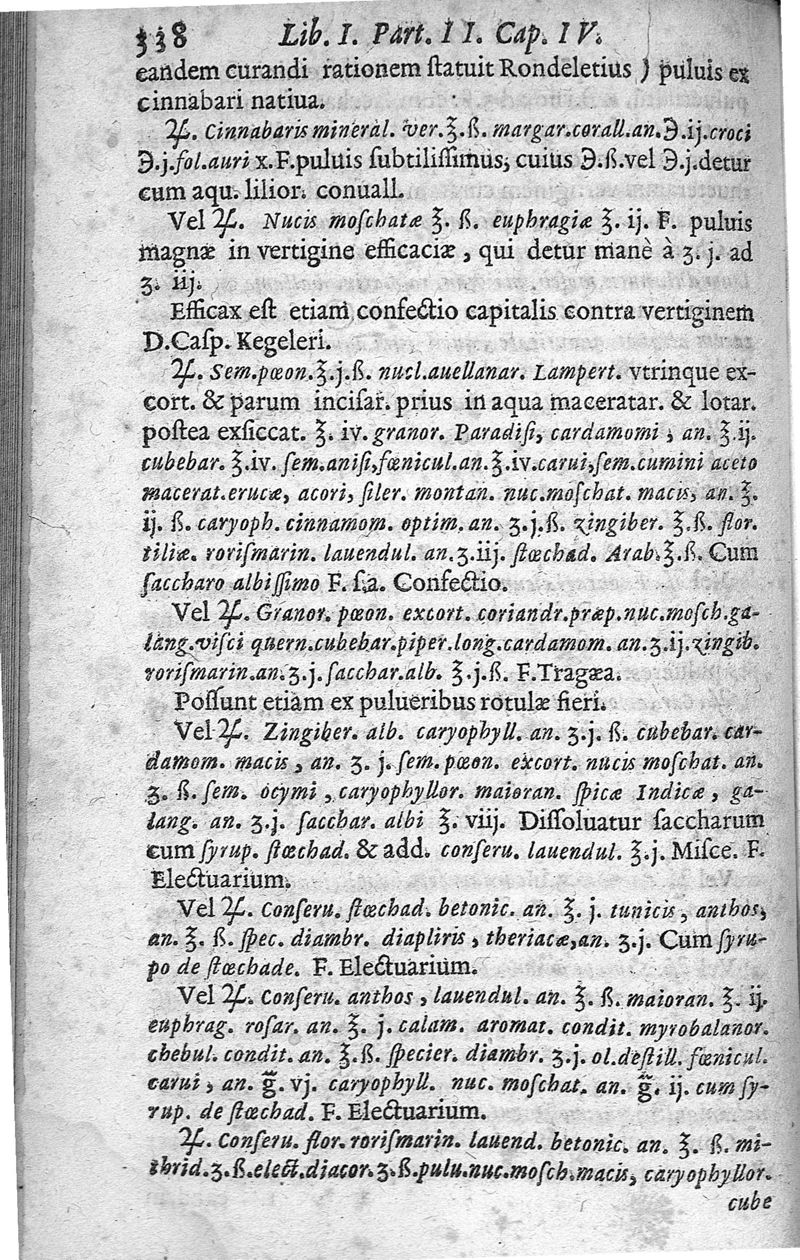 338 Lib. I. Part. II. Cap. IV.
eandem curandi rationem ſtatuit Rondeletius ) puluis ex
cinnabari natiua.
♃. Cinnabaris mineral. ver. ℥. ß. margar. corall. an. ℈. ij. croci
℈. j. fol. auri x. F. puluis ſubtiliſſimus; cuius ℈. ß. vel ℈. j. detur
cum aqu. lilior. conuall.
Vel ♃. Nucis moſchatæ ℥. ß. euphragiæ ℥. ij. F. puluis
magnæ in vertigine efficaciæ, qui detur manè à ʒ. j. ad
ʒ. iij.
Efficax eſt etiam confectio capitalis contra vertiginem
D. Caſp. Kegeleri.
♃. Sem. pœon. ℥. j. ß. nucl. auellanar. Lampert. vtrinque ex-
cort. & parum inciſar. prius in aqua maceratar. & lotar.
poſtea exſiccat. ℥. iv. granor. Paradiſi, cardamomi, an. ℥. ij.
cubebar. ℥. iv. ſem. aniſi, fœnicul. an. ℥. iv. carui, ſem. cumini aceto
macerat. erucæ, acori, ſiler. montan. nuc. moſchat. macis, an. ℥.
ij. ß. caryoph. cinnamom. optim. an. ʒ. j. ß. zingiber. ℥. ß. flor.
tiliæ. roriſmarin. lauendul. an. ʒ. iij. ſtœchad. Arab. ℥. ß. Cum
ſaccharo albiſſimo F. ſ. a. Confectio.
Vel ♃. Granor. pœon. excort. coriandr. præp. nuc. moſch. ga-
lang. viſci quern. cubebar. piper. long. cardamom. an. ʒ. ij. zingib.
roriſmarin. an. ʒ. j. ſacchar. alb. ℥. j. ß. F. Tragæa.
Poſſunt etiam ex pulueribus rotulæ fieri.
Vel ♃. Zingiber. alb. caryophyll. an. ʒ. j. ß. cubebar. car-
damom. macis, an. ʒ. j. ſem. pœon. excort. nucis moſchat. an.
ʒ. ß. ſem. ocymi, caryophyllor. maioran. ſpicæ Indicæ, ga-
lang. an. ʒ. j. ſacchar. albi ℥. viij. Diſſoluatur ſaccharum
cum ſyrup. ſtœchad. & add. conſeru. lauendul. ℥. j. Miſce. F.
Electuarium.
Vel ♃. Conſeru. ſtœchad. betonic. an. ℥. j. tunicis, anthos,
an. ℥. ß. ſpec. diambr. diapliris, theriacæ, an. ʒ. j. Cum ſyru-
po de ſtœchade. F. Electuarium.
Vel ♃. Conſeru. anthos, lauendul. an. ℥. ß. maioran. ℥. ij.
euphrag. roſar. an. ℥. j. calam. aromat. condit. myrobalanor.
chebul. condit. an. ℥. ß. ſpecier. diambr. ʒ. j. ol. deſtill. fœnicul.
carui, an. g̃. vj. caryophyll. nuc. moſchat. an. g̃. ij. cum ſy-
rup. de ſtœchad. F. Electuarium.
♃. Conſeru. flor. roriſmarin. lauend. betonic. an. ℥. ß. mi-
thrid. ʒ. ß. elect. diacor. ʒ. ß. pulu. nuc. moſch. macis, caryophyllor.
cube